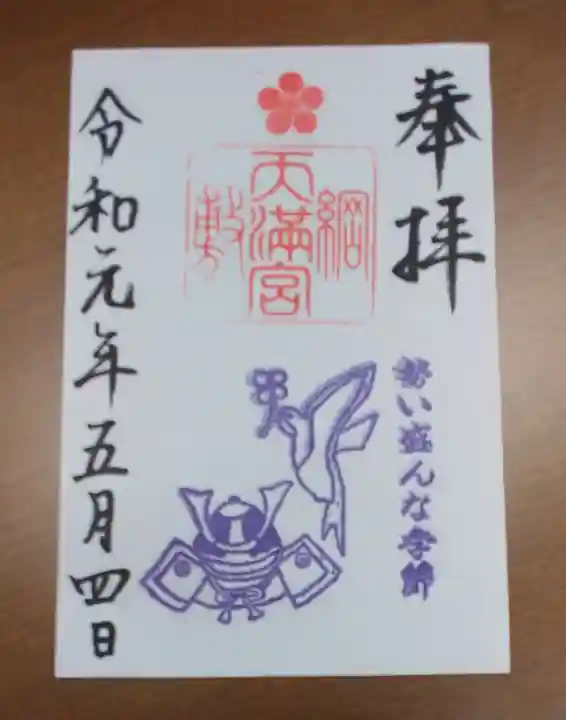 奉拝
綱敷
天満宮
勢い盛んな季節
令和元年五月四日